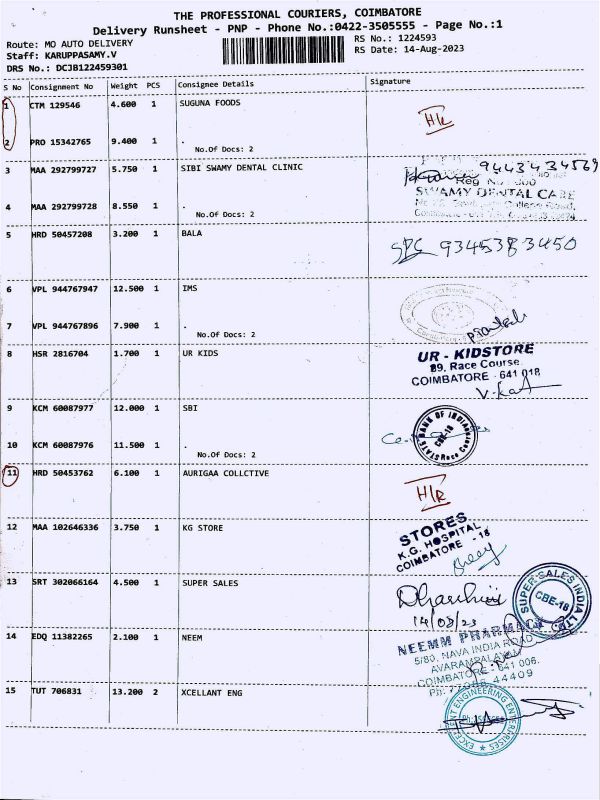 THE PROFESSIONAL COURIERS, COIMBATORE
Delivery Runsheet - PNP - Phone No.:0422-3505555 - Page No.:1
Route: MO AUTO DELIVERY
RS No.: 1224593
Staff: KARUPPASAMY.V
RS Date: 14-Aug-2023
DRS No.: DCJB122459301
S No Consignment No Weight PCS Consignee Details Signature
1 CTM 129546 4.600 1 SUGUNA FOODS
2 PRO 15342765 9.400 1 .
No.Of Docs: 2
3 MAA 292799727 5.750 1 SIBI SWAMY DENTAL CLINIC
9443434569
Reg No
SWAMY DENTAL CARE
4 MAA 292799728 8.550 1 .
No.Of Docs: 2
5 HRD 50457208 3.200 1 BALA
9345383450
6 VPL 944767947 12.500 1 IMS
7 VPL 944767896 7.900 1 .
No.Of Docs: 2
8 HSR 2816704 1.700 1 UR KIDS
UR - KIDSTORE
89, Race Course
COIMBATORE - 641 018
9 KCM 60087977 12.000 1 SBI
STATE BANK OF INDIA
CBE-18
Race Course
10 KCM 60087976 11.500 1 .
No.Of Docs: 2
11 HRD 50453762 6.100 1 AURIGAA COLLCTIVE
12 MAA 102646336 3.750 1 KG STORE
STORES
K.G. HOSPITAL
COIMBATORE - 18
13 SRT 302066164 4.500 1 SUPER SALES
14/08/23
SUPER SALES INDIA LTD
CBE-18
14 EDQ 11382265 2.100 1 NEEM
NEEMM PHARMACY
5/80, NAVA INDIA ROAD
AVARAMPALAYAM
COIMBATORE - 641 006.
15 TUT 706831 13.200 2 XCELLANT ENG
EXCELLENT ENGINEERING ENTERPRISES